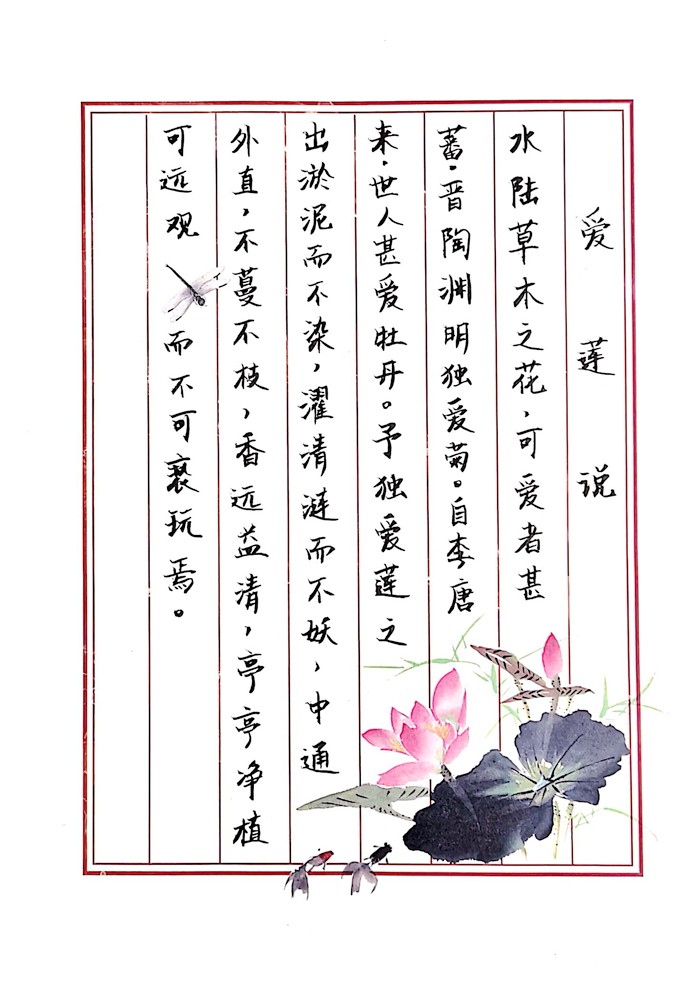 爱莲说
水陆草木之花，可爱者甚
蕃。晋陶渊明独爱菊。自李唐
来，世人甚爱牡丹。予独爱莲之
出淤泥而不染，濯清涟而不妖，中通
外直，不蔓不枝，香远益清，亭亭净植
可远观而不可亵玩焉。